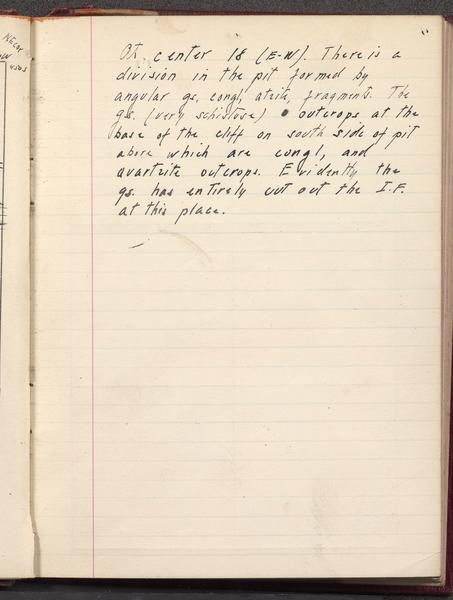 At center 18 (E-W). There is a
division in the pit formed by
angular gs, congl, qtzite, fragments. The
gs. (very schistose) outcrops at the
base of the cliff on south side of pit
above which are congl, and
quartzite outcrops. Evidently the
gs. has entirely cut out the I.F.
at this place.